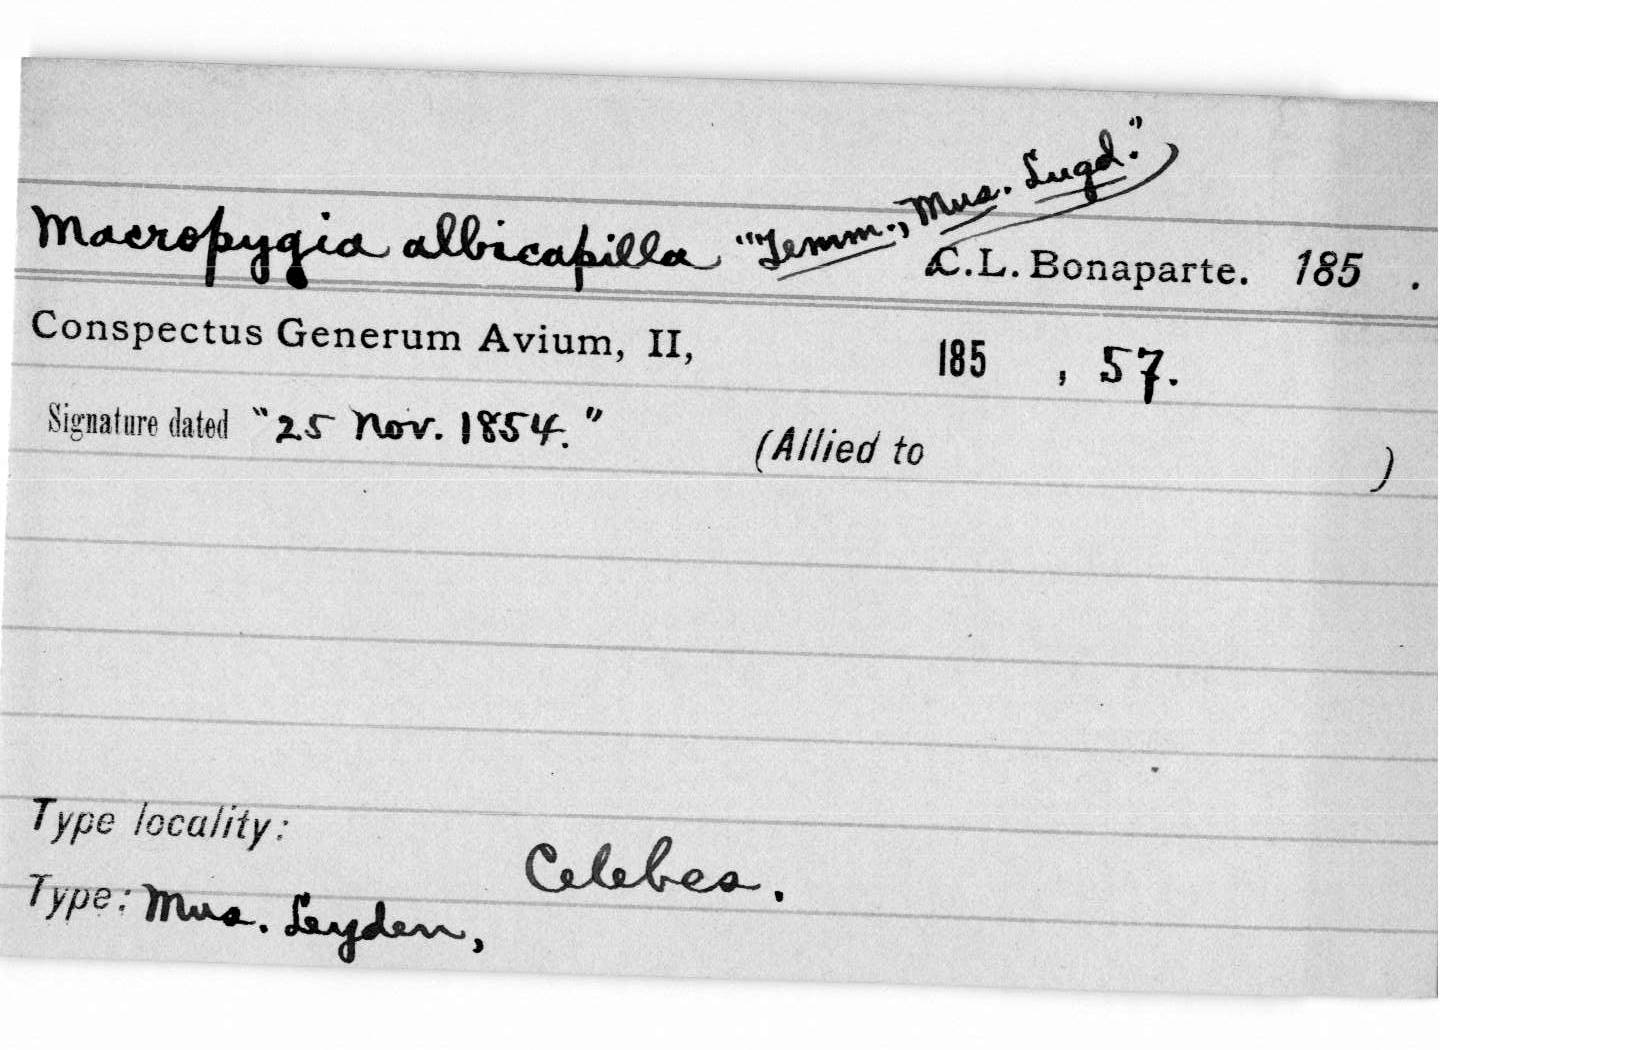 Macropygia albicapilla "Temm., Mus. Lugd.")
C.L. Bonaparte. 185 .
Conspectus Generum Avium, II, 185 , 57.
Signature dated "25 Nov. 1854." (Allied to )
Type locality: Celebes.
Type: Mus. Leyden,